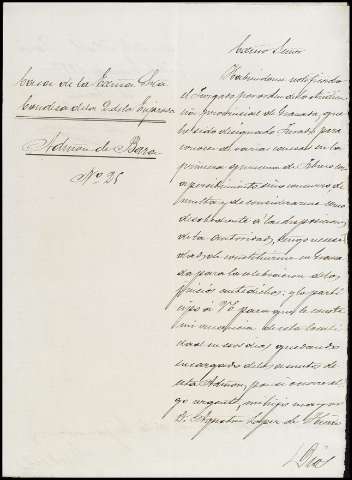 Casa de la Excma Sra
Condesa de la P. de la
Admón de Baza
Nº 25
Excmo Señor
Habiendome notificado
el Juzgado por orden de la Audien-
cia provincial de Granada, que
he sido designado Jurado para
conocer de varias causas en la
primera quincena de Febrero con
apercibimiento sino concurro de
multa y de considerarme como
desobediente a las disposiciones
de la Autoridad, tengo necesi-
dad de constituirme en Grana-
da para la celebracion de los
juicios antedichos; y lo parti-
cipo á VE para que le conste
mi ausencia de esta locali-
dad en esos dias quedando
encargado de los asuntos de
esta Admon, por si ocurre al-
go urgente, mi hijo mayor
D. Agustin Lopez de
Dios